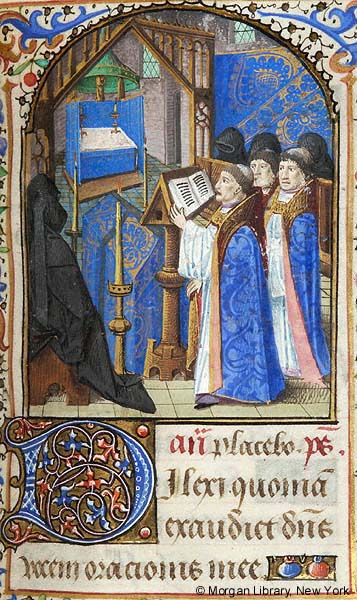 Añ placebo. p̄s.
Dilexi quoniā
exaudiet dñs
vocem oracionis mee
© Morgan Library, New York